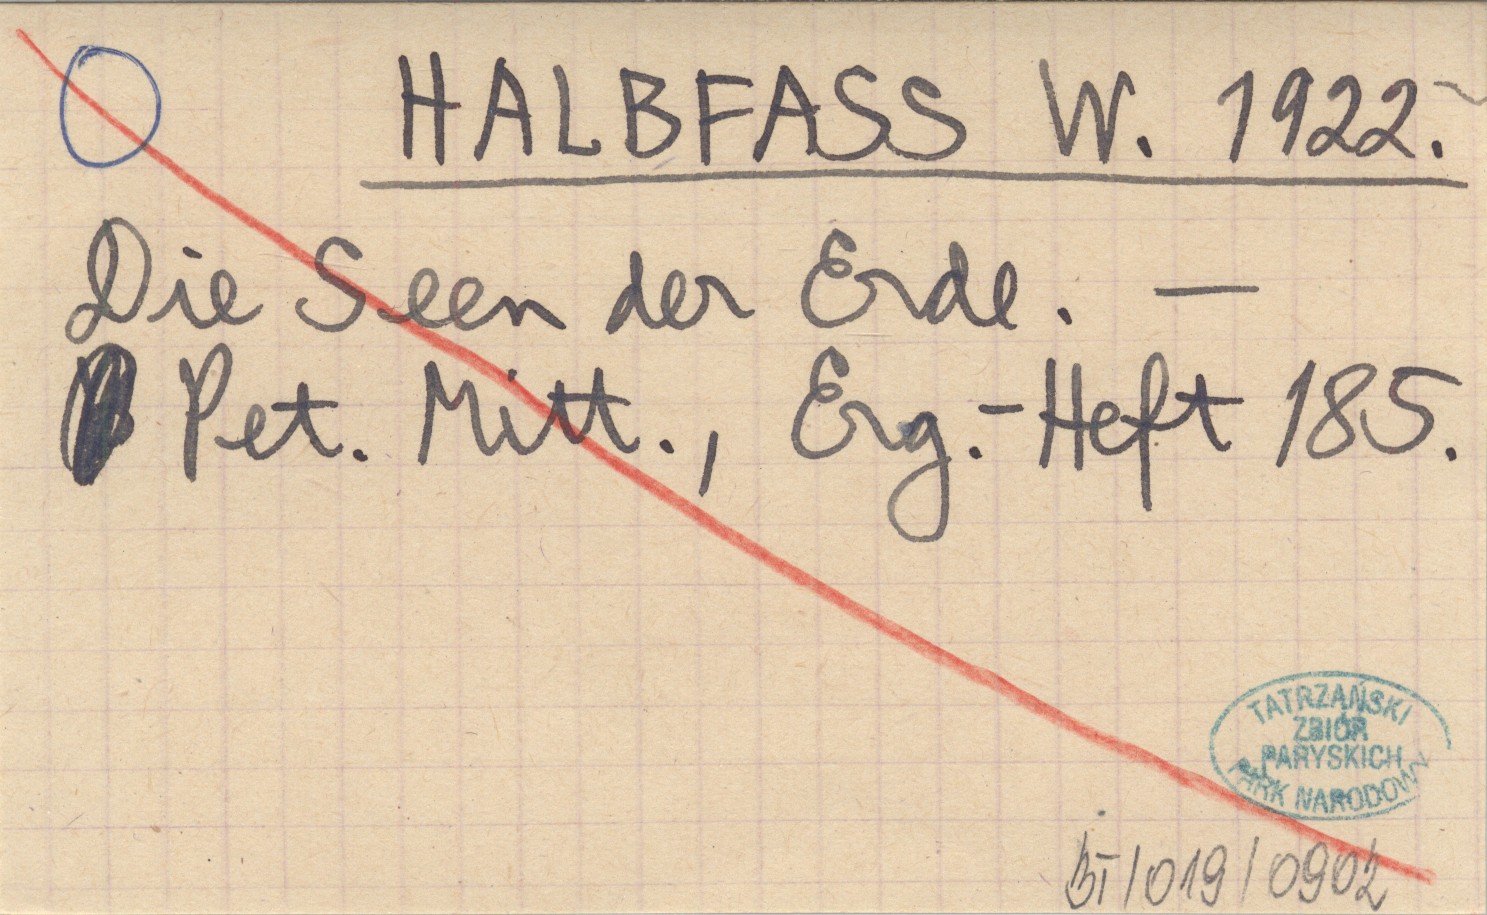 HALBFASS W. 1922.
Die Seen der Erde. —
Pet. Mitt., Erg.-Heft 185.
TATRZAŃSKI
ZBIÓR
PARYSKICH
PARK NARODOWY
BT/019/0902